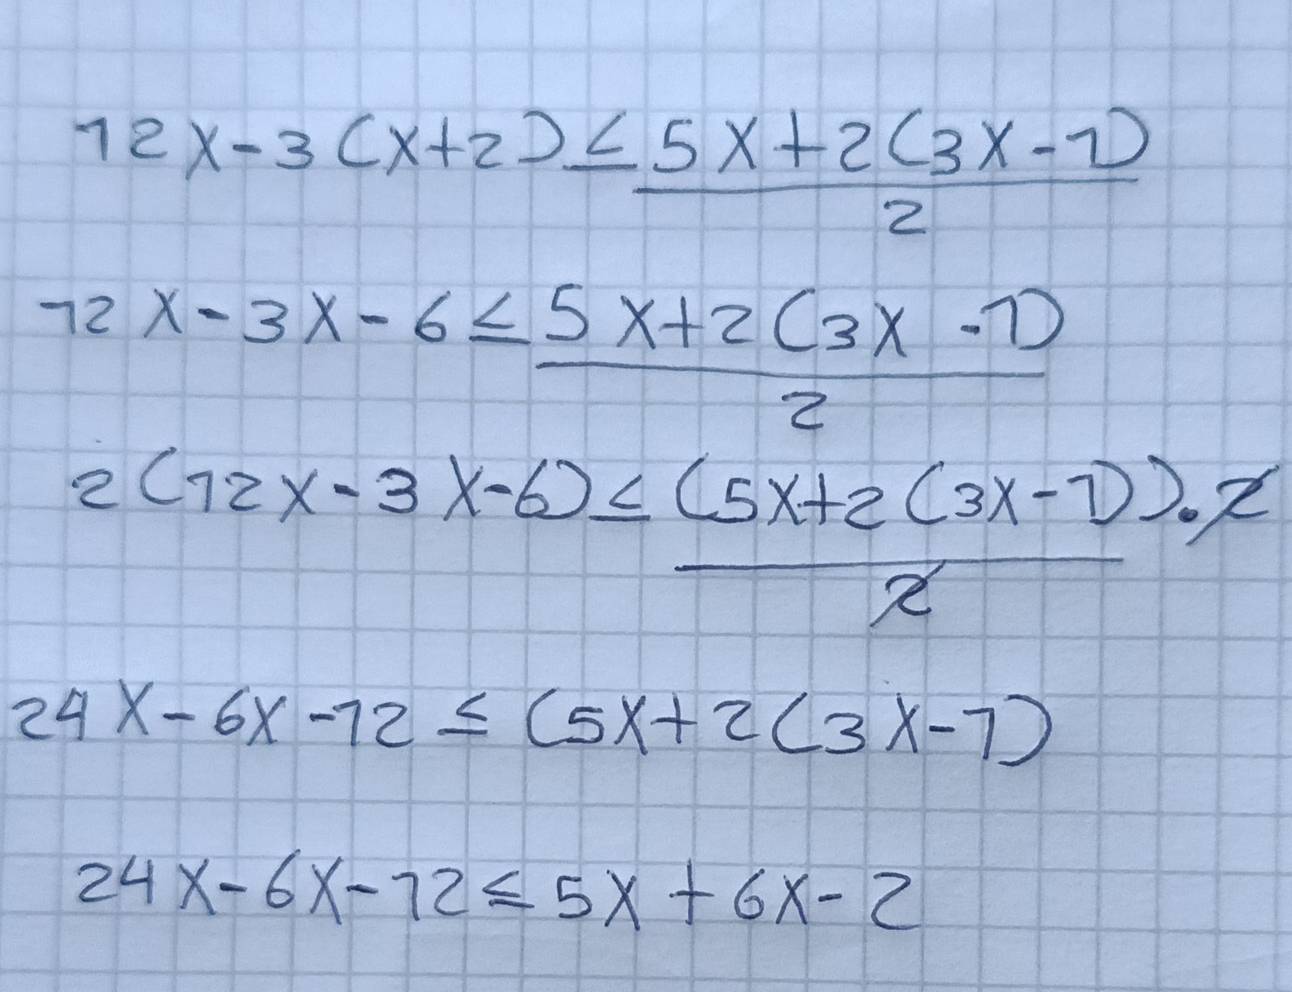 12x-3(x+2)≤5x+2(3x-1)
2
12x-3x-6≤5x+2(3x-1)
2
2(12x-3x-6)≤(5x+2(3x-1)).2
2
24x-6x-12≤(5x+2(3x-1)
24x-6x-12≤5x+6x-2